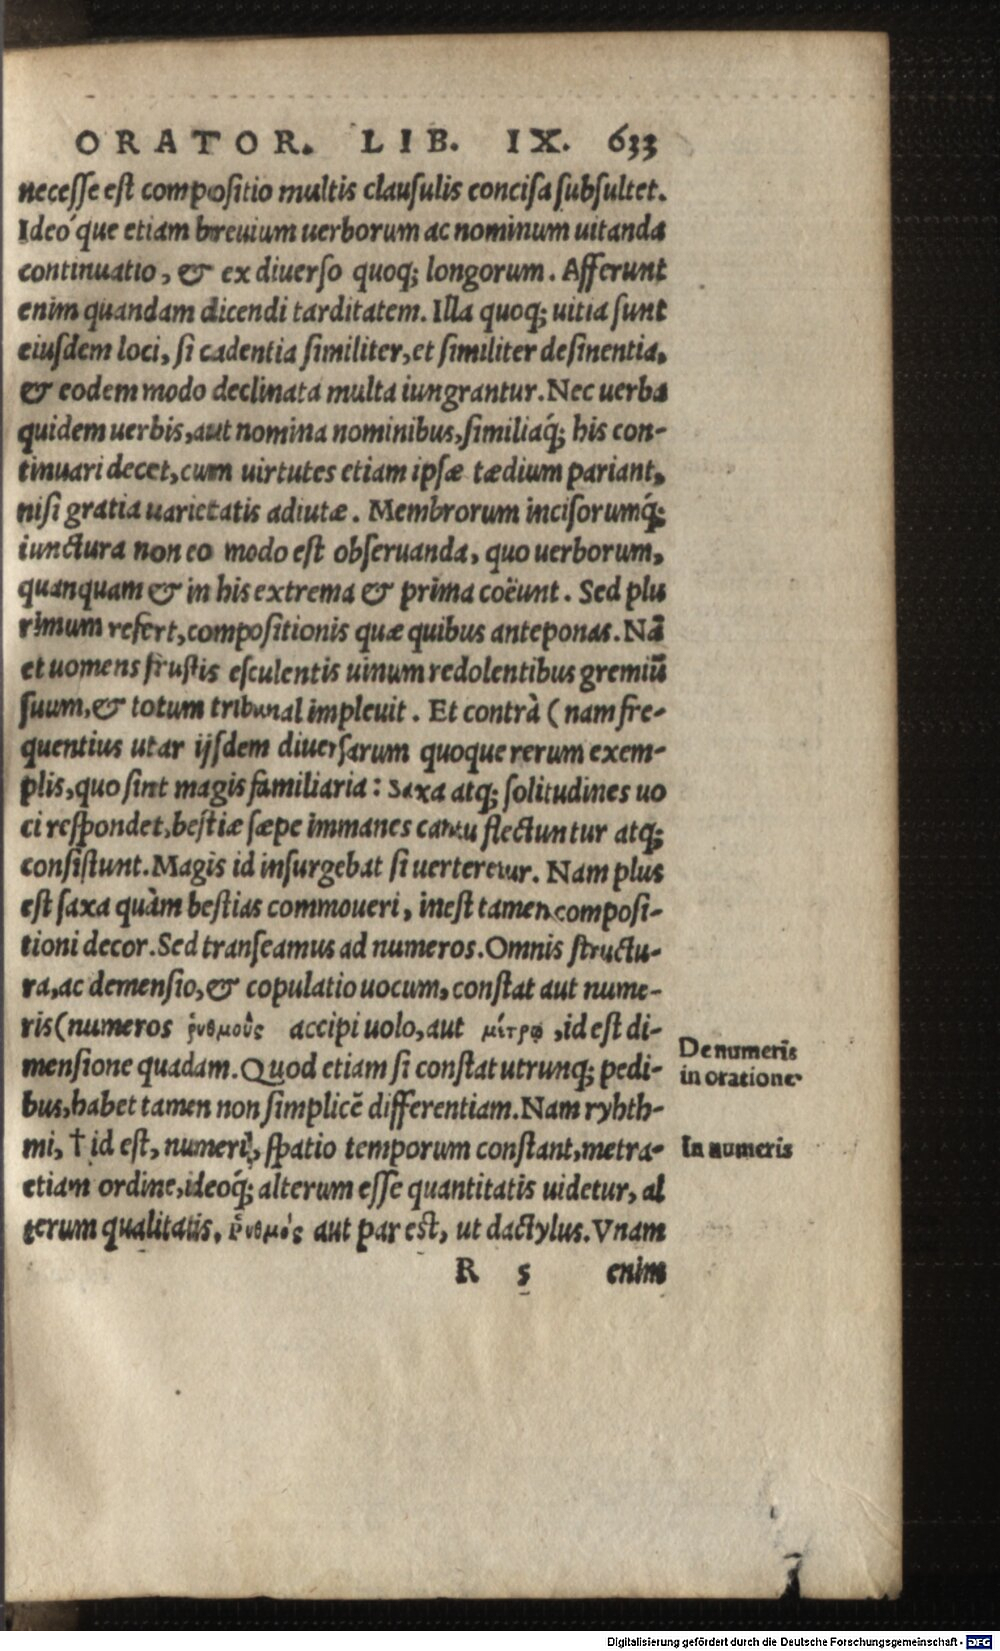 ORATOR. LIB. IX. 633
necesse est compositio multis clausulis concisa subsultet.
Ideó que etiam breuium uerborum ac nominum uitanda
continuatio, & ex diuerso quoq; longorum. Afferunt
enim quandam dicendi tarditatem. Illa quoq; uitia sunt
eiusdem loci, si cadentia similiter, et similiter desinentia,
& eodem modo declinata multa iungrantur. Nec uerba
quidem uerbis, aut nomina nominibus, similiaq́; his con-
tinuari decet, cum uirtutes etiam ipsæ tædium pariant,
nisi gratia uarietatis adiutæ. Membrorum incisorumq́;
iunctura non eo modo est obseruanda, quo uerborum,
quanquam & in his extrema & prima coëunt. Sed plu
rimum refert, compositionis quæ quibus anteponas. Nã
et uomens frustis esculentis uinum redolentibus gremiũ
suum, & totum tribunal impleuit. Et contrà ( nam fre-
quentius utar ijsdem diuersarum quoque rerum exem-
plis, quo sint magis familiaria: Saxa atq; solitudines uo
ci respondet, bestiæ sæpe immanes cantu flectuntur atq;
consistunt. Magis id insurgebat si uerteretur. Nam plus
est saxa quàm bestias commoueri, inest tamen composi-
tioni decor. Sed transeamus ad numeros. Omnis structu-
ra, ac demensio, & copulatio uocum, constat aut nume-
ris (numeros ῥυθμοὺς accipi uolo, aut μέτρῳ, id est di-
mensione quadam. Quod etiam si constat utrunq; pedi-
bus, habet tamen non simplicẽ differentiam. Nam ryhth-
mi, † id est, numeri, spatio temporum constant, metra-
etiam ordine, ideoq́; alterum esse quantitatis uidetur, al
terum qualitatis. ῥυθμός aut par est, ut dactylus. Vnam
R 5 enim
De numeris
in oratione
In numeris
Digitalisierung gefördert durch die Deutsche Forschungsgemeinschaft - DFG